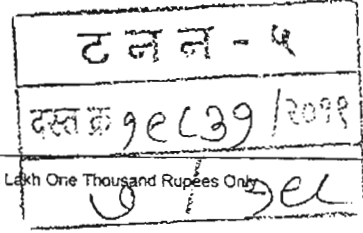 ट न न - ५
दस्त क्र १९८३१ / २०११
Lakh One Thousand Rupees Only
७ / १८